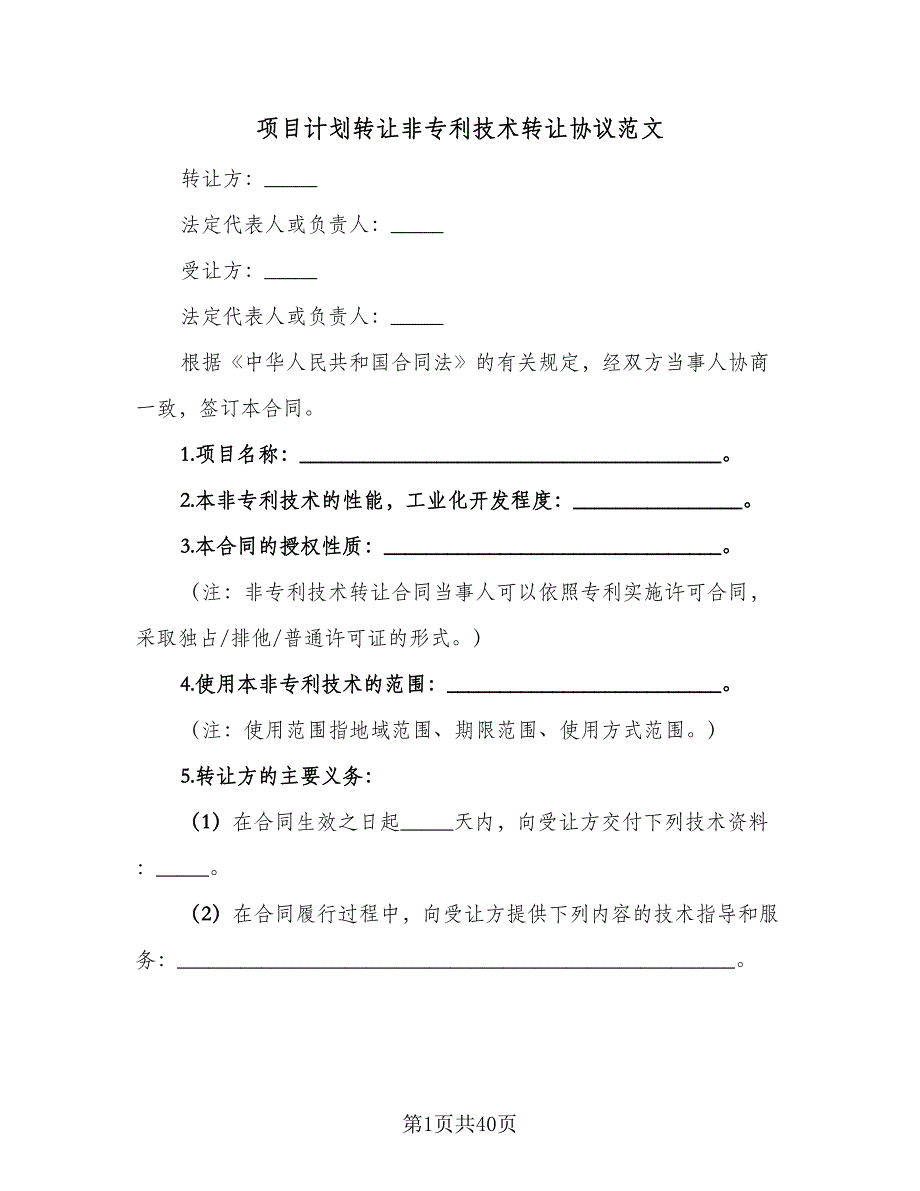 项目计划转让非专利技术转让协议范文
转让方：_____
法定代表人或负责人：_____
受让方：_____
法定代表人或负责人：_____
根据《中华人民共和国合同法》的有关规定，经双方当事人协商
一致，签订本合同。
1.项目名称：________________________________________。
2.本非专利技术的性能，工业化开发程度：________________。
3.本合同的授权性质：________________________________。
（注：非专利技术转让合同当事人可以依照专利实施许可合同，
采取独占/排他/普通许可证的形式。）
4.使用本非专利技术的范围：__________________________。
（注：使用范围指地域范围、期限范围、使用方式范围。）
5.转让方的主要义务：
（1）在合同生效之日起_____天内，向受让方交付下列技术资料
：_____。
（2）在合同履行过程中，向受让方提供下列内容的技术指导和服
务：_____________________________________________________。
第1页共40页